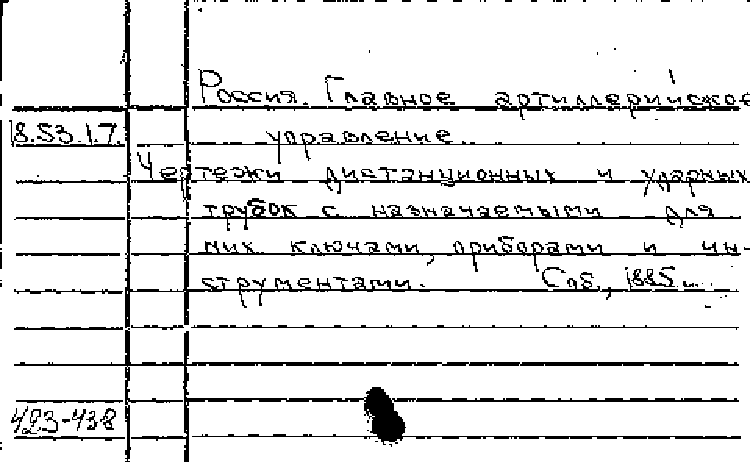 Россия. Главное артиллерийское
18.53.1.7. управление
Чертежи дистанционных и ударных
трубок с назначаемыми для
них ключами, приборами и ин-
струментами. Спб., 1885.
423-438